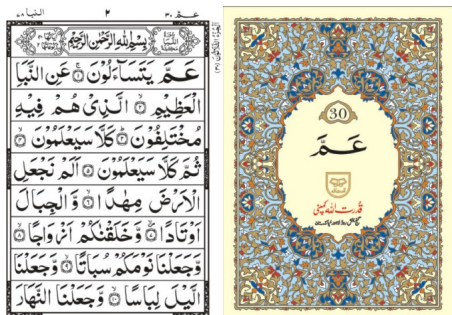 النبا ٧٨
٢
عـم ٣٠
بِسْمِ اللهِ الرَّحْمٰنِ الرَّحِيْمِ
عَمَّ يَتَسَآءَلُوْنَ ۚ‏ ١ عَنِ النَّبَاِ
الْعَظِيْمِ ۙ‏ ٢ الَّذِىْ هُمْ فِيْهِ
مُخْتَلِفُوْنَ ؕ‏ ٣ كَلَّا سَيَعْلَمُوْنَ ۙ‏ ٤
ثُمَّ كَلَّا سَيَعْلَمُوْنَ ٥ اَلَمْ نَجْعَلِ
الْاَرْضَ مِهٰدًا ۙ‏ ٦ وَّ الْجِبَالَ
اَوْتَادًا ۙ‏ ٧ وَّخَلَقْنٰكُمْ اَزْوَاجًا ۙ‏ ٨
وَّجَعَلْنَا نَوْمَكُمْ سُبَاتًا ۙ‏ ٩ وَّجَعَلْنَا
الَّيْلَ لِبَاسًا ۙ‏ ١٠ وَّجَعَلْنَا النَّهَارَ
30
عَمَّ
قدرت اللہ کمپنی